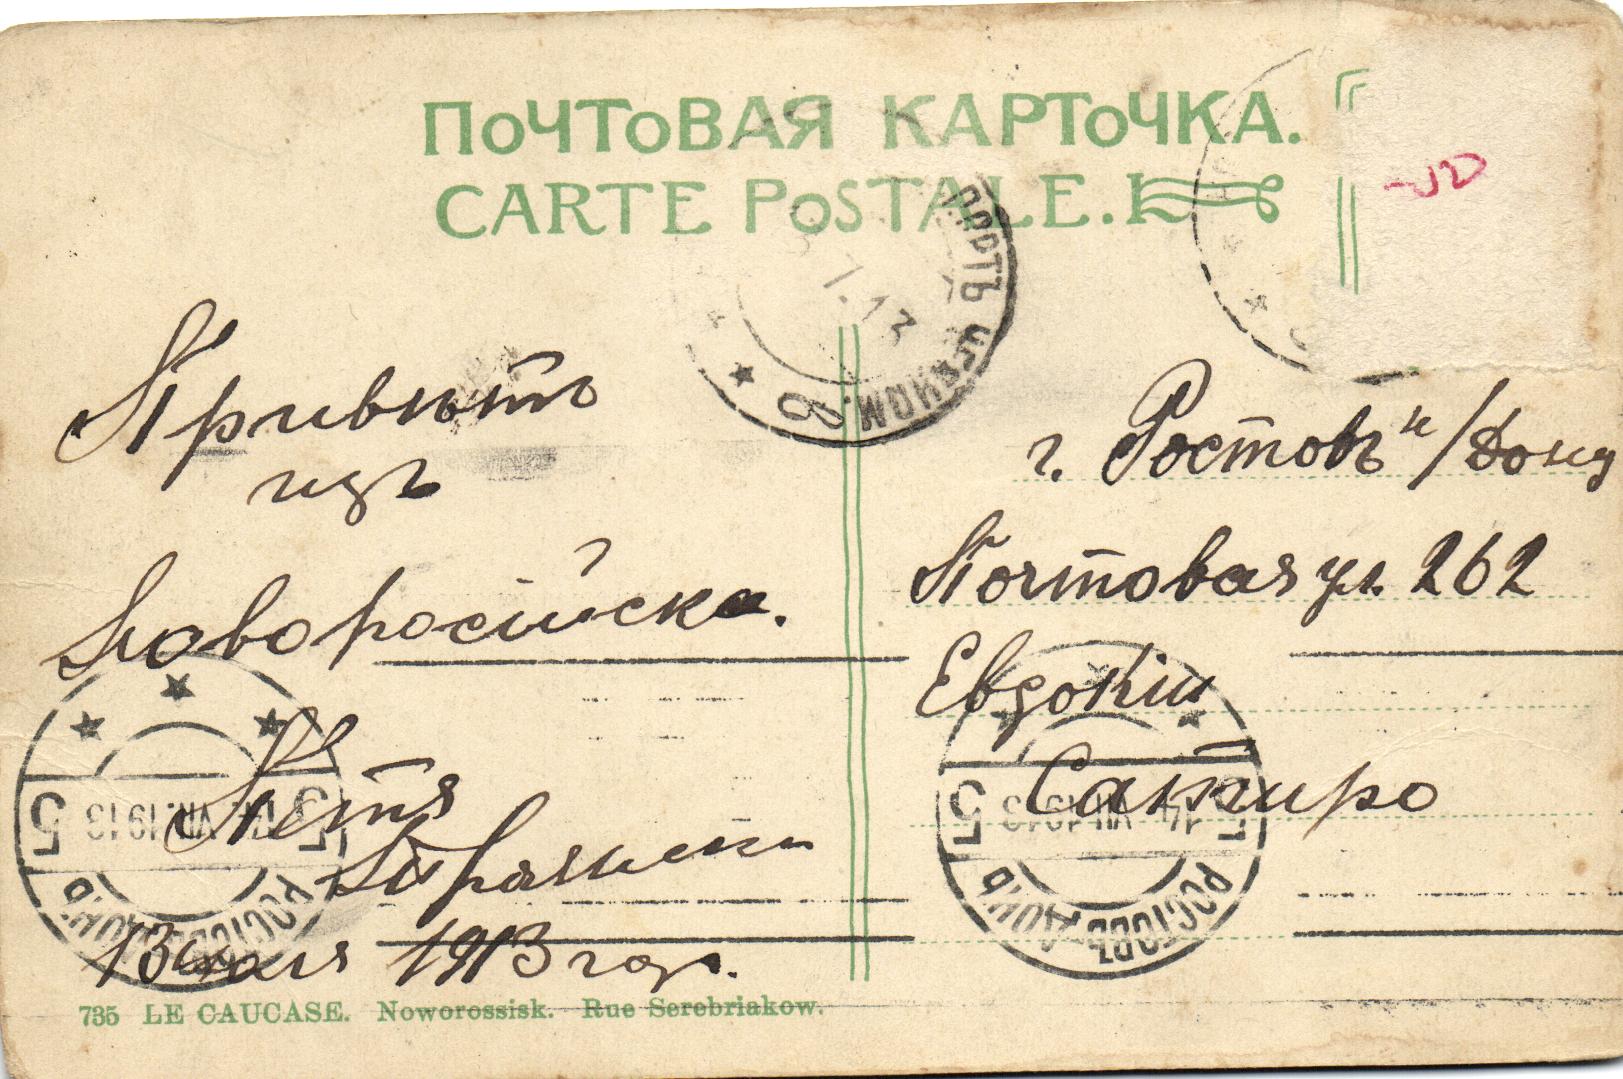 ПОЧТОВАЯ КАРТОЧКА.
CARTE POSTALE.
7.13
ЧЕРНОМ.
в
Привѣтъ
изъ
Новоросійска.
Петя
13 юля 1913 год.
г. Ростовъ н/Дону
Почтовая ул. 262
Евдокіи
Сапиро
5 14 VII 1913 5
РОСТОВЪ ДОНЪ
5 14 VII 1913 5
РОСТОВЪ ДОНЪ
735 LE CAUCASE. Noworossisk. Rue Serebriakow.